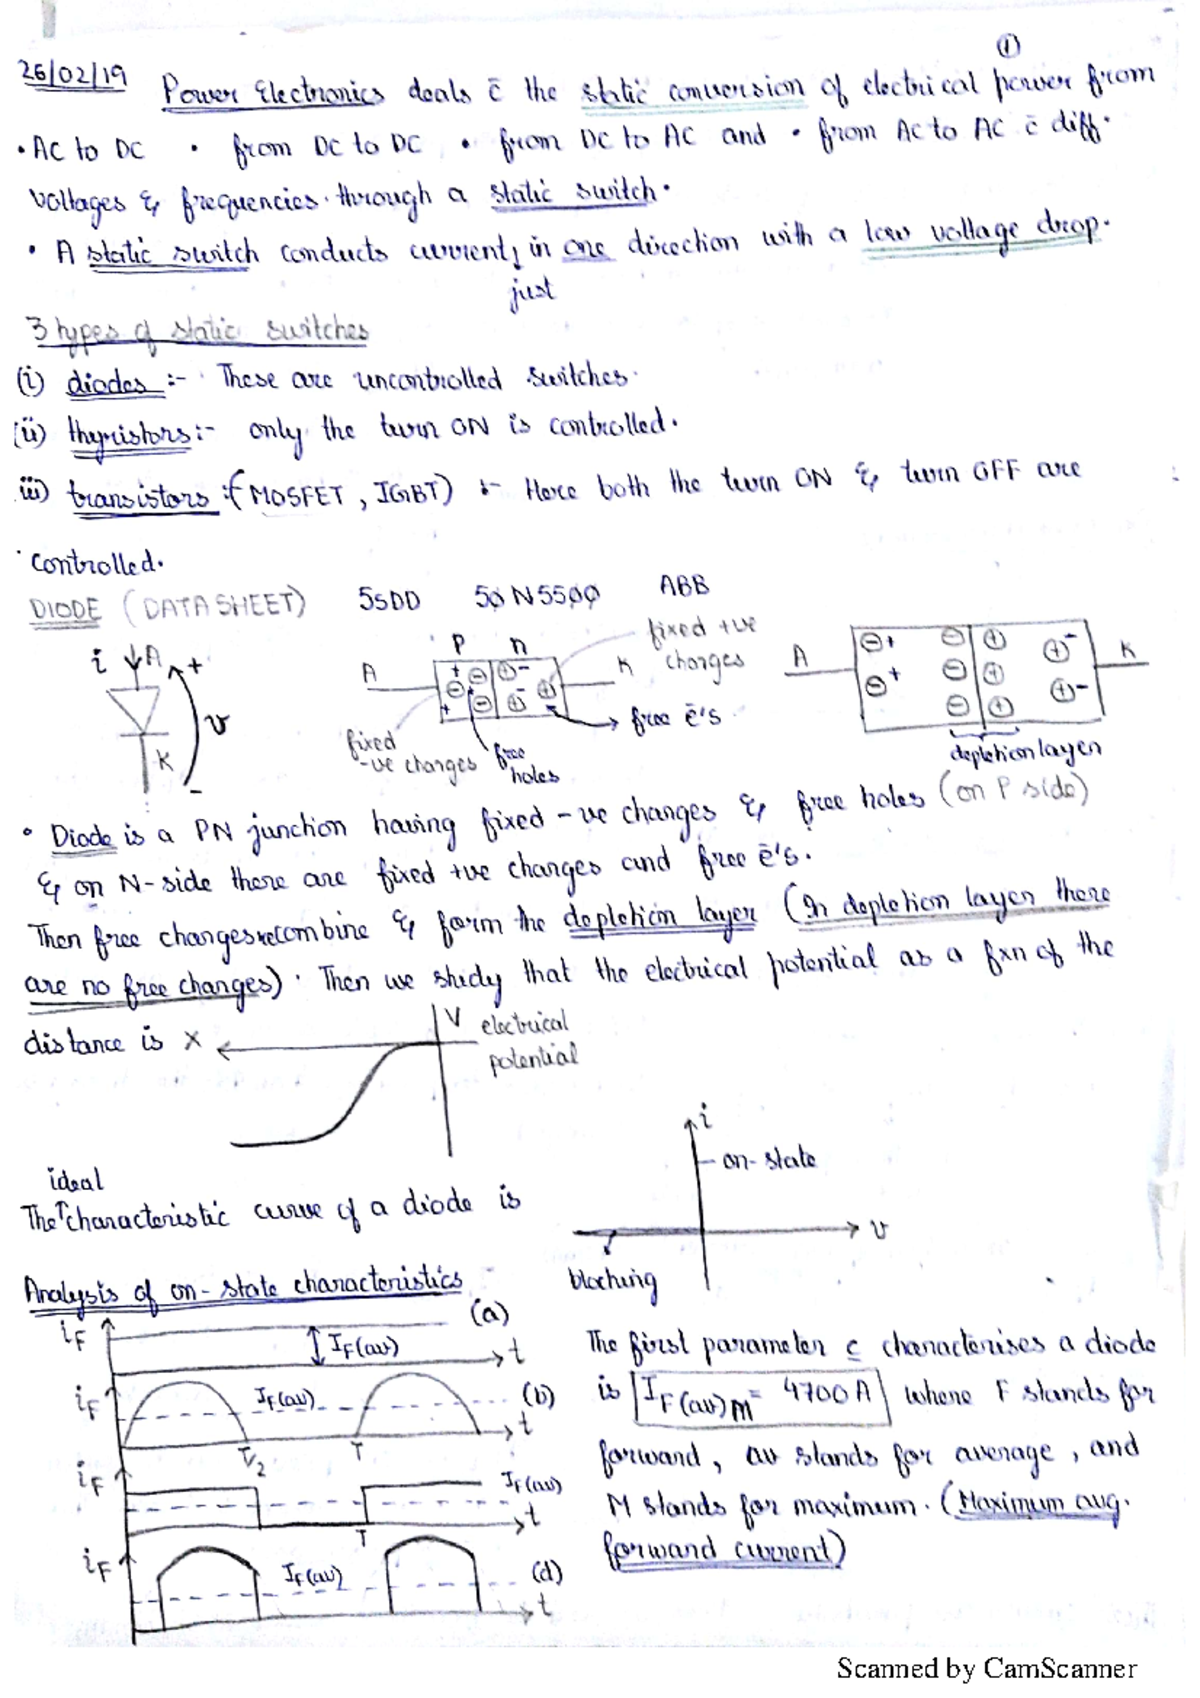 ①
26/02/19 Power Electronics deals c̄ the static conversion of electrical power from
• AC to DC • from DC to DC • from DC to AC and • from AC to AC c̄ diff.
voltages & frequencies. through a static switch.
• A static switch conducts current, in one direction with a low voltage drop.
just
3 types of static switches
(i) diodes :- These are uncontrolled switches.
(ii) thyristors:- only the turn ON is controlled.
iii) transistors :(MOSFET, IGBT) :- Here both the turn ON & turn OFF are
controlled.
DIODE (DATA SHEET) 5SDD 50N5500 ABB
i A + v K -
A P n K
fixed +ve charges
free ē's
fixed -ve charges
free holes
A K
depletion layer
• Diode is a PN junction having fixed -ve charges & free holes (on P side)
& on N-side there are fixed +ve charges and free ē's.
Then free charges recombine & form the depletion layer (In depletion layer there
are no free charges). Then we study that the electrical potential as a fxn of the
distance is X
V electrical
potential
i
on-state
v
blocking
ideal
The ↑ characteristic curve of a diode is
Analysis of on-state characteristics
iF IF(av) t (a)
iF IF(av) (b) t
T/2 T
iF IF(av) t
T
iF IF(av) (d) t
The first parameter c characterises a diode
is IF(av)M = 4700A where F stands for
forward, av stands for average, and
M stands for maximum. (Maximum avg.
forward current)
Scanned by CamScanner